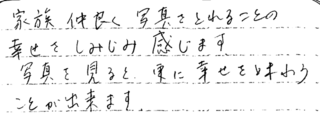 家族 仲良く 写真をとれることの
幸せを しみじみ 感じます
写真を 見ると 更に 幸せを 味わう
ことが出来ます